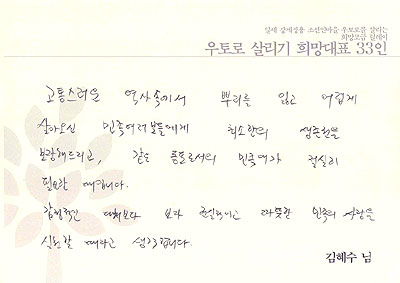 일제 강제징용 조선인마을 우토로를 살리는
희망모금 릴레이
우토로 살리기 희망대표 33인
고통스러운 역사속에서 뿌리를 잃고 어렵게
살아오신 민족여러분들에게 최소한의 생존권을
보장해드리고, 같은 동포로서의 민족애가 절실히
필요한 때입니다.
감정적인 대처보다 보다 현실적이고 따뜻한 민족의 사랑을
실천할 때라고 생각합니다.
김혜수 님